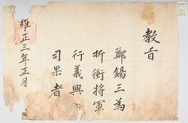 教旨
鄭錫三爲
折衝將軍
行義興
司果者
雍正三年正月